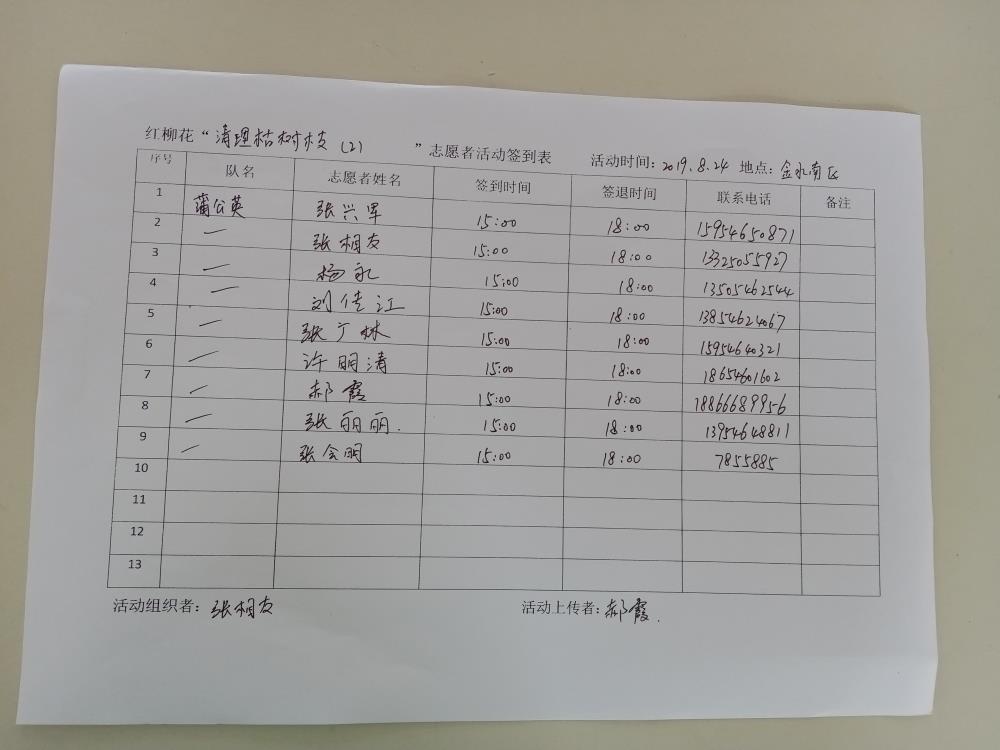 红柳花“清理枯树枝(2)”志愿者活动签到表 活动时间：2019.8.24 地点：金水南区
序号 队名 志愿者姓名 签到时间 签退时间 联系电话 备注
1 蒲公英 张兴军 15:00 18:00 15954650871
2 一 张相友 15:00 18:00 13325055927
3 一 杨永 15:00 18:00 13505462544
4 一 刘传江 15:00 18:00 13854624067
5 一 张广林 15:00 18:00 15954640321
6 一 许明涛 15:00 18:00 18654601602
7 一 郝霞 15:00 18:00 18866689956
8 一 张丽丽. 15:00 18:00 13954648811
9 一 张会明 15:00 18:00 7855885
10
11
12
13
活动组织者：张相友 活动上传者：郝霞.